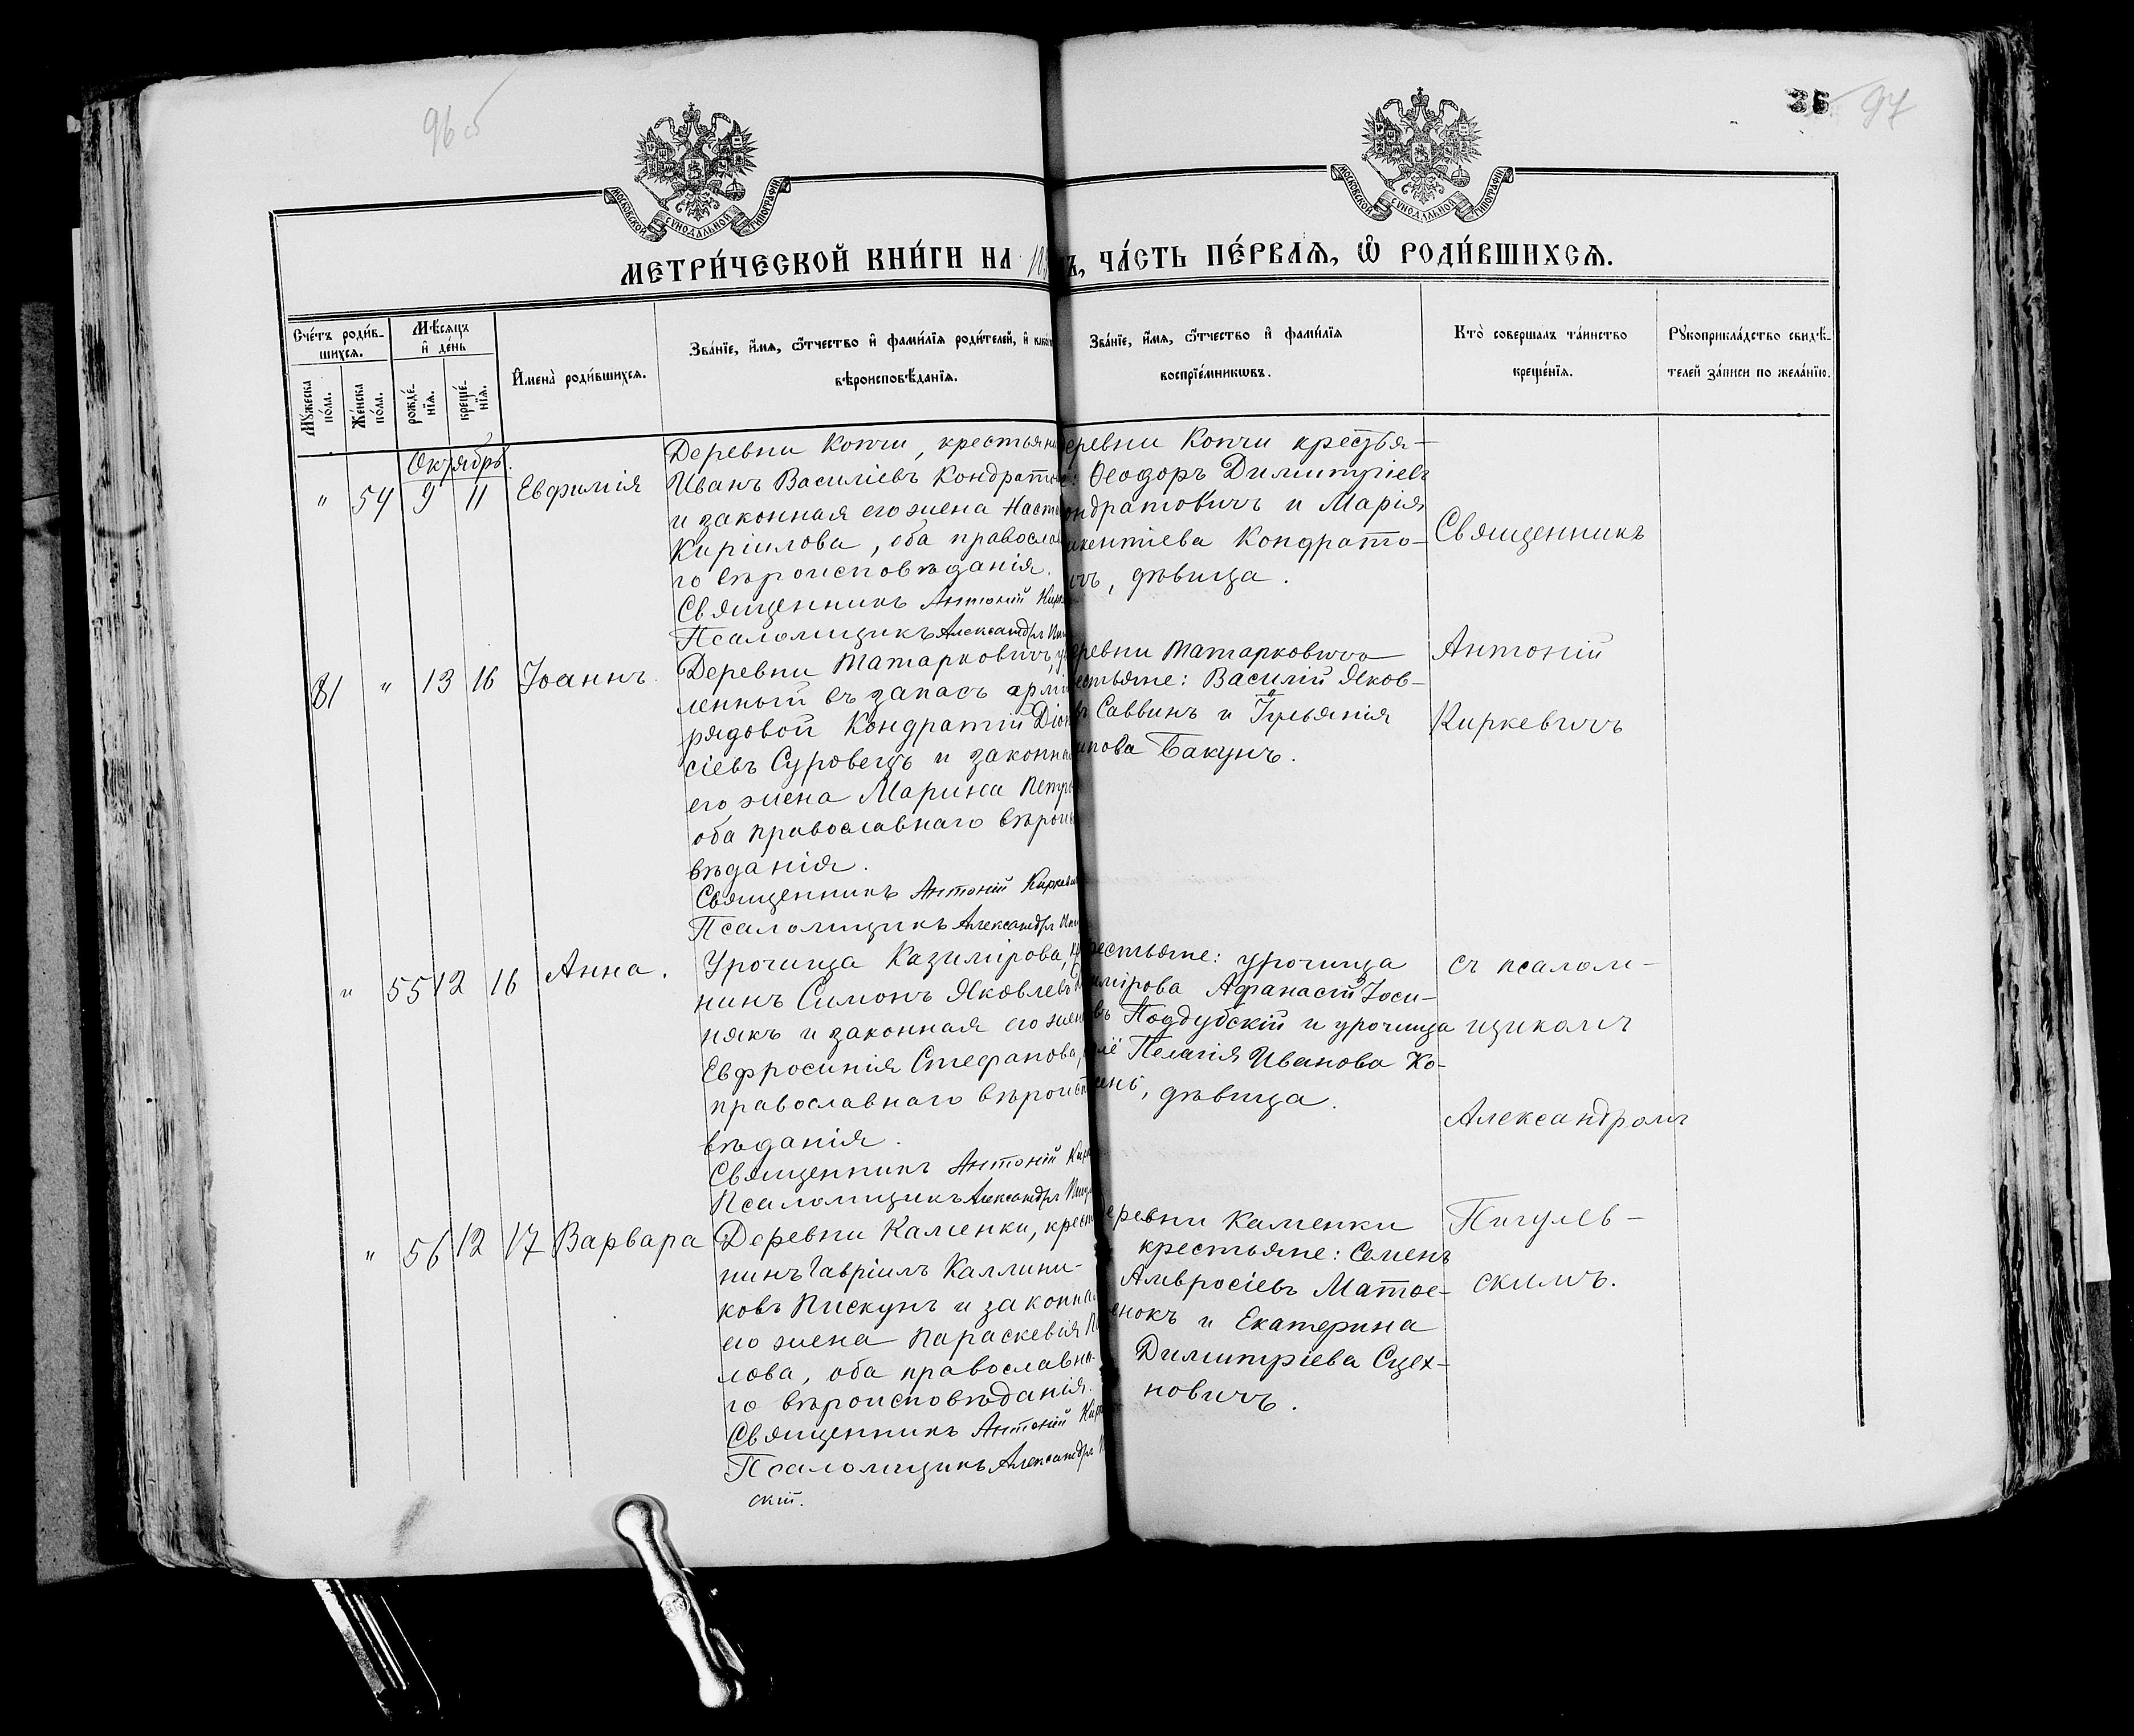 96 об
35 97
МОСКОВСКОЙ СѴНОДАЛЬНОЙ ТИПОГРАФІИ
МОСКОВСКОЙ СѴНОДАЛЬНОЙ ТИПОГРАФІИ
МЕТРИ́ЧЕСКОЙ КНИ́ГИ НА 18
Ъ, ЧА́СТЬ ПЕ́РВАѦ, Ѿ РОДИ́ВШИХСѦ.
Сче́тъ роди́в-
шихсѧ.
Мꙋ́жеска по́ла.
Же́нска по́ла.
Мѣ́сѧцъ
и҆ де́нь
рожде́-
нїѧ.
креще́-
нїѧ.
И҆мена̀ роди́вшихсѧ.
Зва́нїе, и҆́мѧ, ѻ҆́тчество и҆ фами́лїѧ роди́телей, и҆
вѣроисповѣ́данїѧ.
Зва́нїе, и҆́мѧ, ѻ҆́тчество и҆ фами́лїѧ
воспрїе́мникѡвъ.
Кто̀ соверша́лъ та́инство
креще́нїѧ.
Рꙋкоприкла́дство свидѣ́-
телей за́писи по жела́нїю.
Октябрь.
" 54 9 11 Евфимія
Деревни Копчи, крестьяни
Иванъ Василіевъ Кондрато
и законная его жена Наст
Кириллова, оба православ
го вѣроисповѣданія.
Священникъ Антоній Кирк
Псаломщикъ Александръ Пиг
еревни Копчи крестья-
: Ѳеодоръ Димитріевъ
ондратовичъ и Марія
икентіева Кондрато-
ичъ, дѣвица.
81 " 13 16 Іоаннъ.
Деревни Татарковичъ, у
ленный въ запасъ арміи
рядовой Кондратій Діон
сіевъ Суровецъ и законна
его жена Марина Петро
оба православнаго вѣроис
вѣданія.
Священникъ Антоній Киркеви
Псаломщикъ Александръ Пиг
еревни Татарковичъ
естьяне: Василій Яков-
ъ Саввинъ и Іульянія
ипова Бакунъ.
" 55 12 16 Анна.
Урочища Казимірова, кр
нинъ Симонъ Яковлевъ
някъ и законная его жена
Евфросинія Стефанова,
православнаго вѣроисп
вѣданія.
Священникъ Антоній Кирк
Псаломщикъ Александръ Пигу
рестьяне: урочища
имірова Афанасій Іоси-
въ Поддубскій и урочища
Пелагія Иванова Ко-
ень, дѣвица.
" 56 12 17 Варвара
Деревни Каменки, крест
нинъ Гавріилъ Каллини-
ковъ Пискунъ и законна
его жена Параскевія П
лова, оба православна-
го вѣроисповѣданія.
Священникъ Антоній Кирк
Псаломщикъ Александръ
скій.
еревни Каменки
крестьяне: Семенъ
Амвросіевъ Матве-
енокъ и Екатерина
Димитріева Сцех-
новичъ.
Священникъ
Антоній
Киркевичъ
съ псалом-
щикомъ
Александромъ
Пигулев-
скимъ.